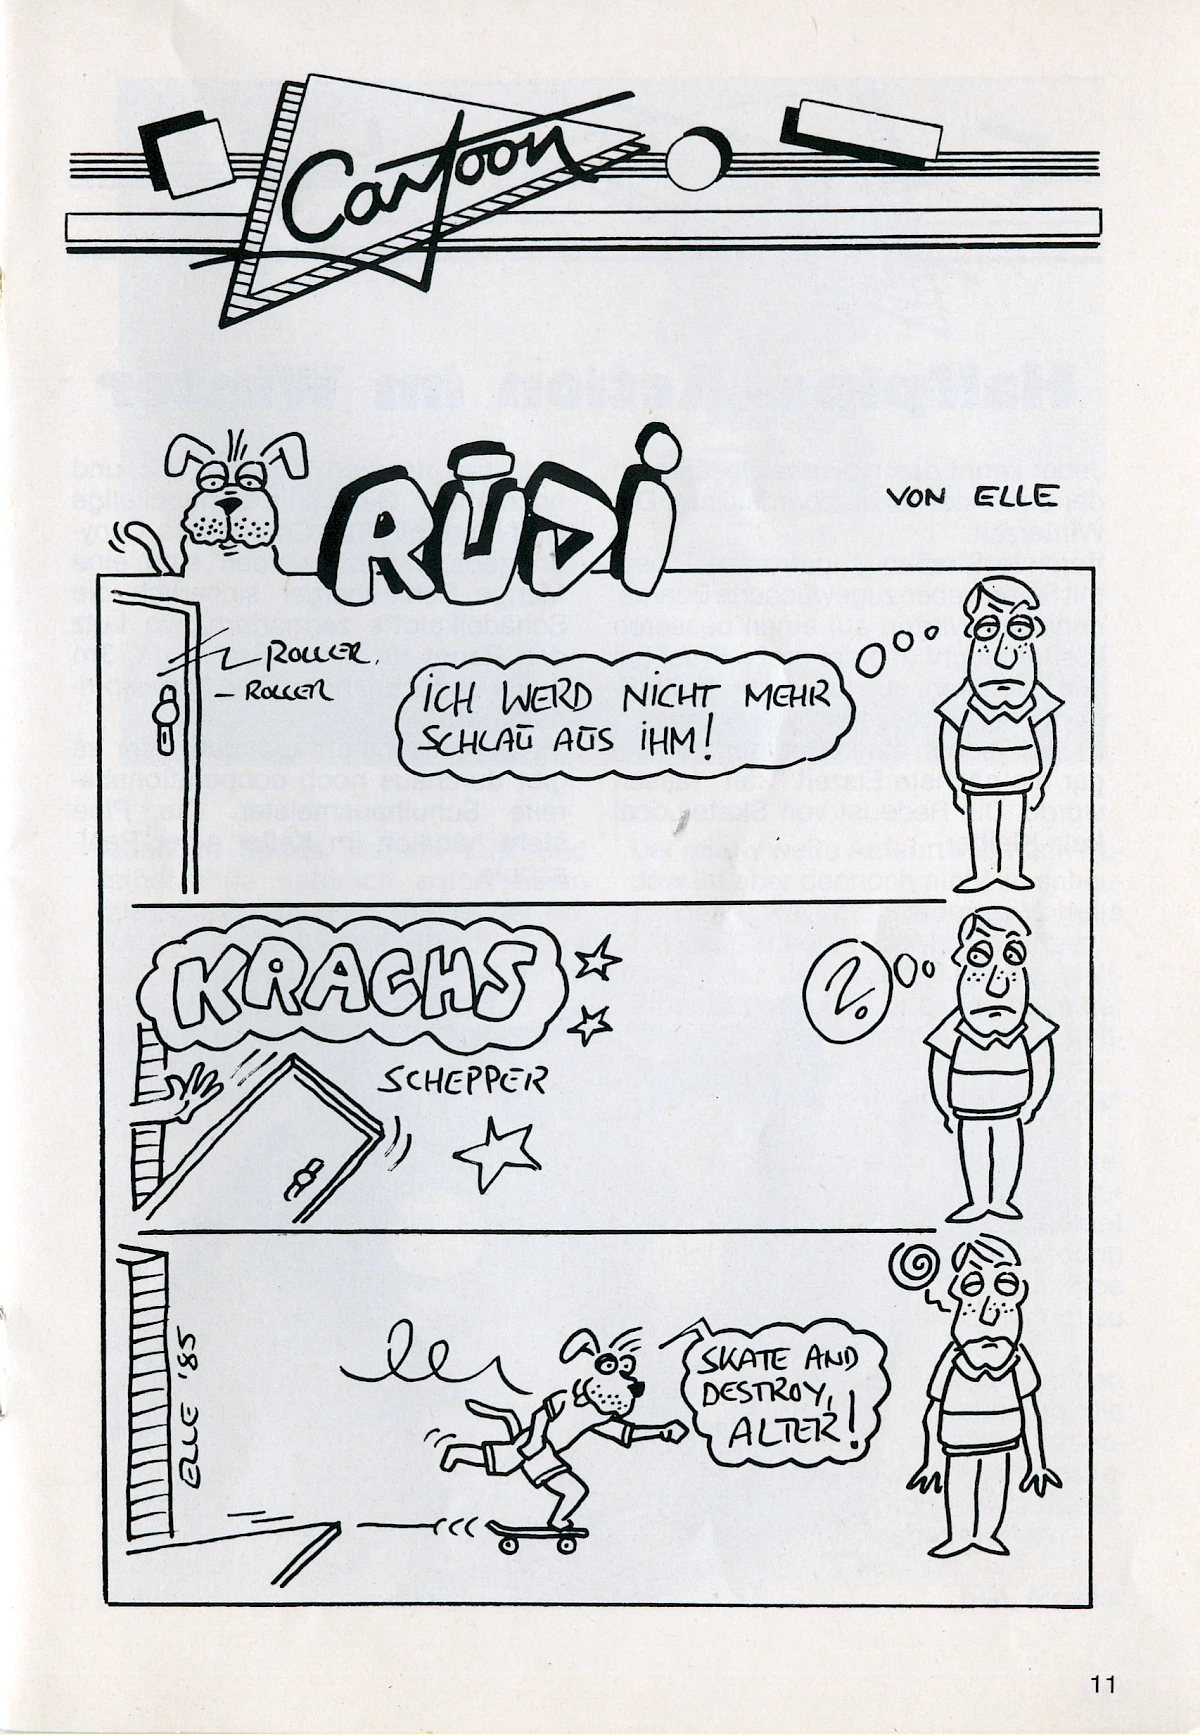 Cartoon
RÜDi
VON ELLE
ROLLER,
– ROLLER
iCH WERD NiCHT MEHR
SCHLAU AUS iHM!
KRACHS
?
SCHEPPER
SKATE AND
DESTROY,
ALTER!
ELLE '85
11